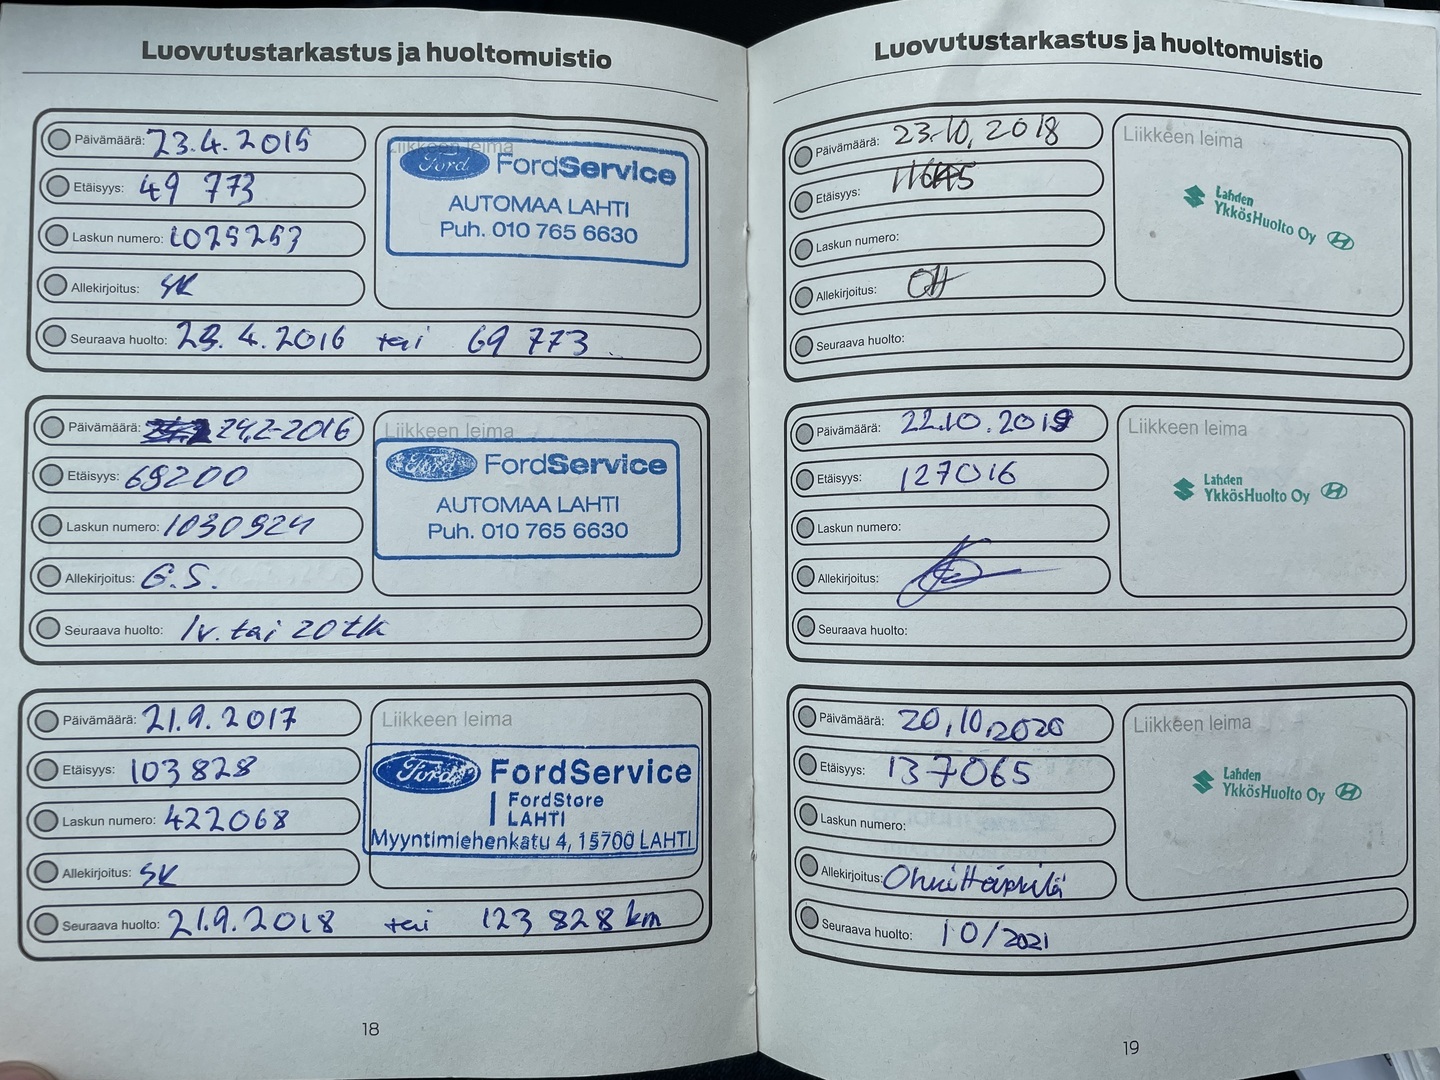 Luovutustarkastus ja huoltomuistio
Päivämäärä: 23.4.2015
Etäisyys: 49 773
Laskun numero: 1025253
Allekirjoitus: SK
Seuraava huolto: 23.4.2016 tai 69 773
Liikkeen leima
Ford FordService
AUTOMAA LAHTI
Puh. 010 765 6630
Päivämäärä: 24.2-2016
Etäisyys: 69200
Laskun numero: 1030924
Allekirjoitus: G.S.
Seuraava huolto: 1v. tai 20tk
Liikkeen leima
Ford FordService
AUTOMAA LAHTI
Puh. 010 765 6630
Päivämäärä: 21.9.2017
Etäisyys: 103 828
Laskun numero: 422068
Allekirjoitus: SK
Seuraava huolto: 21.9.2018 tai 123 828 km
Liikkeen leima
Ford FordService
FordStore
LAHTI
Myyntimiehenkatu 4, 15700 LAHTI
18
Luovutustarkastus ja huoltomuistio
Päivämäärä: 23.10.2018
Etäisyys:
Laskun numero:
Allekirjoitus: OH
Seuraava huolto:
Liikkeen leima
Lahden
YkkösHuolto Oy
Päivämäärä: 22.10.2019
Etäisyys: 127016
Laskun numero:
Allekirjoitus:
Seuraava huolto:
Liikkeen leima
Lahden
YkkösHuolto Oy
Päivämäärä: 20.10.2020
Etäisyys: 137065
Laskun numero:
Allekirjoitus:
Seuraava huolto: 10/2021
Liikkeen leima
Lahden
YkkösHuolto Oy
19